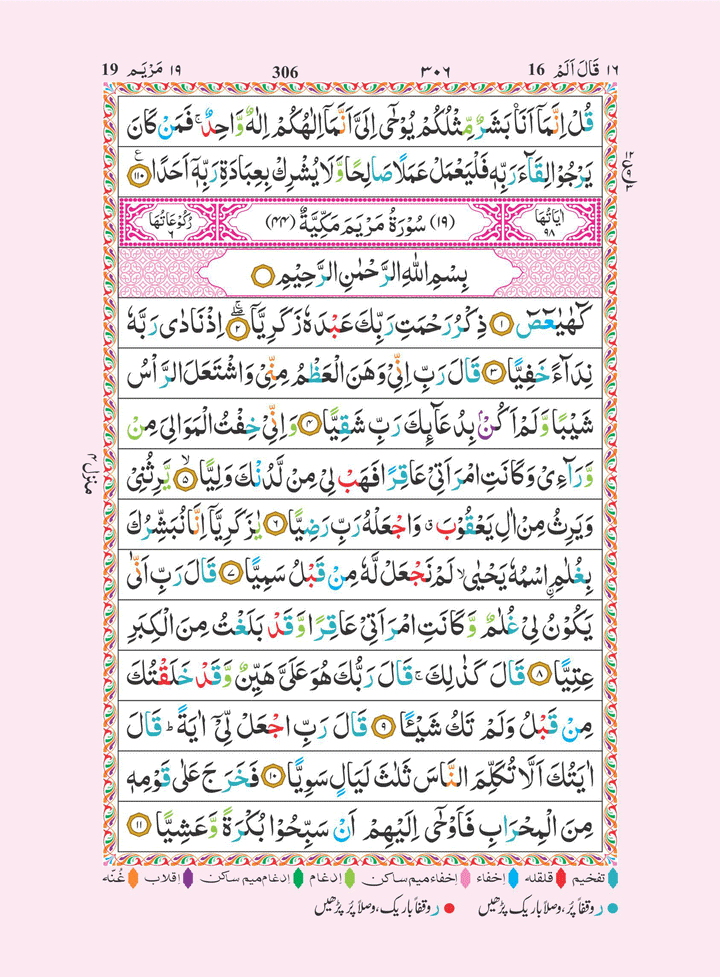 ١٦ قَالَ اَلَمْ 16 ٣٠٦ 306 ١٩ مَرْيَم 19
قُلْ اِنَّمَاۤ اَنَا۠ بَشَرٌ مِّثْلُكُمْ يُوْحٰۤى اِلَیَّ اَنَّمَاۤ اِلٰهُكُمْ اِلٰهٌ وَّاحِدٌ ۚ فَمَنْ كَانَ
يَرْجُوْا لِقَآءَ رَبِّهٖ فَلْيَعْمَلْ عَمَلًا صَالِحًا وَّلَا يُشْرِكْ بِعِبَادَةِ رَبِّهٖۤ اَحَدًا ﴿١١٠﴾
اٰيَاتُهَا ٩٨ (١٩) سُوْرَةُ مَرْيَمَ مَكِّيَّةٌ (٤٤) رُكُوْعَاتُهَا ٦
بِسْمِ اللّٰهِ الرَّحْمٰنِ الرَّحِيْمِ
كٓهٰيٰعٓصٓ ﴿١﴾ ذِكْرُ رَحْمَتِ رَبِّكَ عَبْدَهٗ زَكَرِيَّا ﴿٢﴾ اِذْ نَادٰى رَبَّهٗ
نِدَآءً خَفِيًّا ﴿٣﴾ قَالَ رَبِّ اِنِّیْ وَهَنَ الْعَظْمُ مِنِّیْ وَاشْتَعَلَ الرَّاْسُ
شَيْبًا وَّلَمْ اَكُنْۢ بِدُعَآئِكَ رَبِّ شَقِيًّا ﴿٤﴾ وَاِنِّیْ خِفْتُ الْمَوَالِیَ مِنْ
وَّرَآءِیْ وَكَانَتِ امْرَاَتِیْ عَاقِرًا فَهَبْ لِیْ مِنْ لَّدُنْكَ وَلِيًّا ﴿٥﴾ يَّرِثُنِیْ
وَيَرِثُ مِنْ اٰلِ يَعْقُوْبَ ۖ وَاجْعَلْهُ رَبِّ رَضِيًّا ﴿٦﴾ يٰزَكَرِيَّاۤ اِنَّا نُبَشِّرُكَ
بِغُلٰمِ ۣاسْمُهٗ يَحْيٰى ۙ لَمْ نَجْعَلْ لَّهٗ مِنْ قَبْلُ سَمِيًّا ﴿٧﴾ قَالَ رَبِّ اَنّٰى
يَكُوْنُ لِیْ غُلٰمٌ وَّكَانَتِ امْرَاَتِیْ عَاقِرًا وَّقَدْ بَلَغْتُ مِنَ الْكِبَرِ
عِتِيًّا ﴿٨﴾ قَالَ كَذٰلِكَ ۚ قَالَ رَبُّكَ هُوَ عَلَیَّ هَيِّنٌ وَّقَدْ خَلَقْتُكَ
مِنْ قَبْلُ وَلَمْ تَكُ شَيْئًا ﴿٩﴾ قَالَ رَبِّ اجْعَلْ لِّیْۤ اٰيَةً ؕ قَالَ
اٰيَتُكَ اَلَّا تُكَلِّمَ النَّاسَ ثَلٰثَ لَيَالٍ سَوِيًّا ﴿١٠﴾ فَخَرَجَ عَلٰى قَوْمِهٖ
مِنَ الْمِحْرَابِ فَاَوْحٰۤى اِلَيْهِمْ اَنْ سَبِّحُوْا بُكْرَةً وَّعَشِيًّا ﴿١١﴾
منزل ٤
تفخیم قلقله اِخفاء اِخفاءمیم ساکن اِدغام اِدغام میم ساکن اِقلاب غُنّه
ر وقفاً پُر، وصلاً باریک پڑھیں ر وقفاً باریک، وصلاً پُر پڑھیں